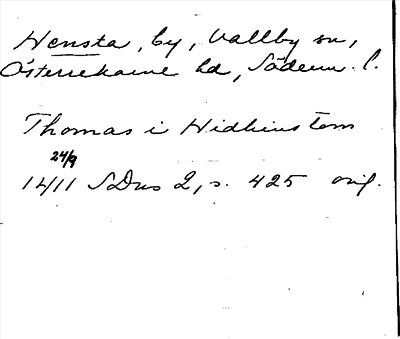 Hensta, by, Vallby sn,
Österrekarne hd, Söderm. l.
Thomas i Hidhinstom
24/9
1411 SDns 2, s. 425 orig.